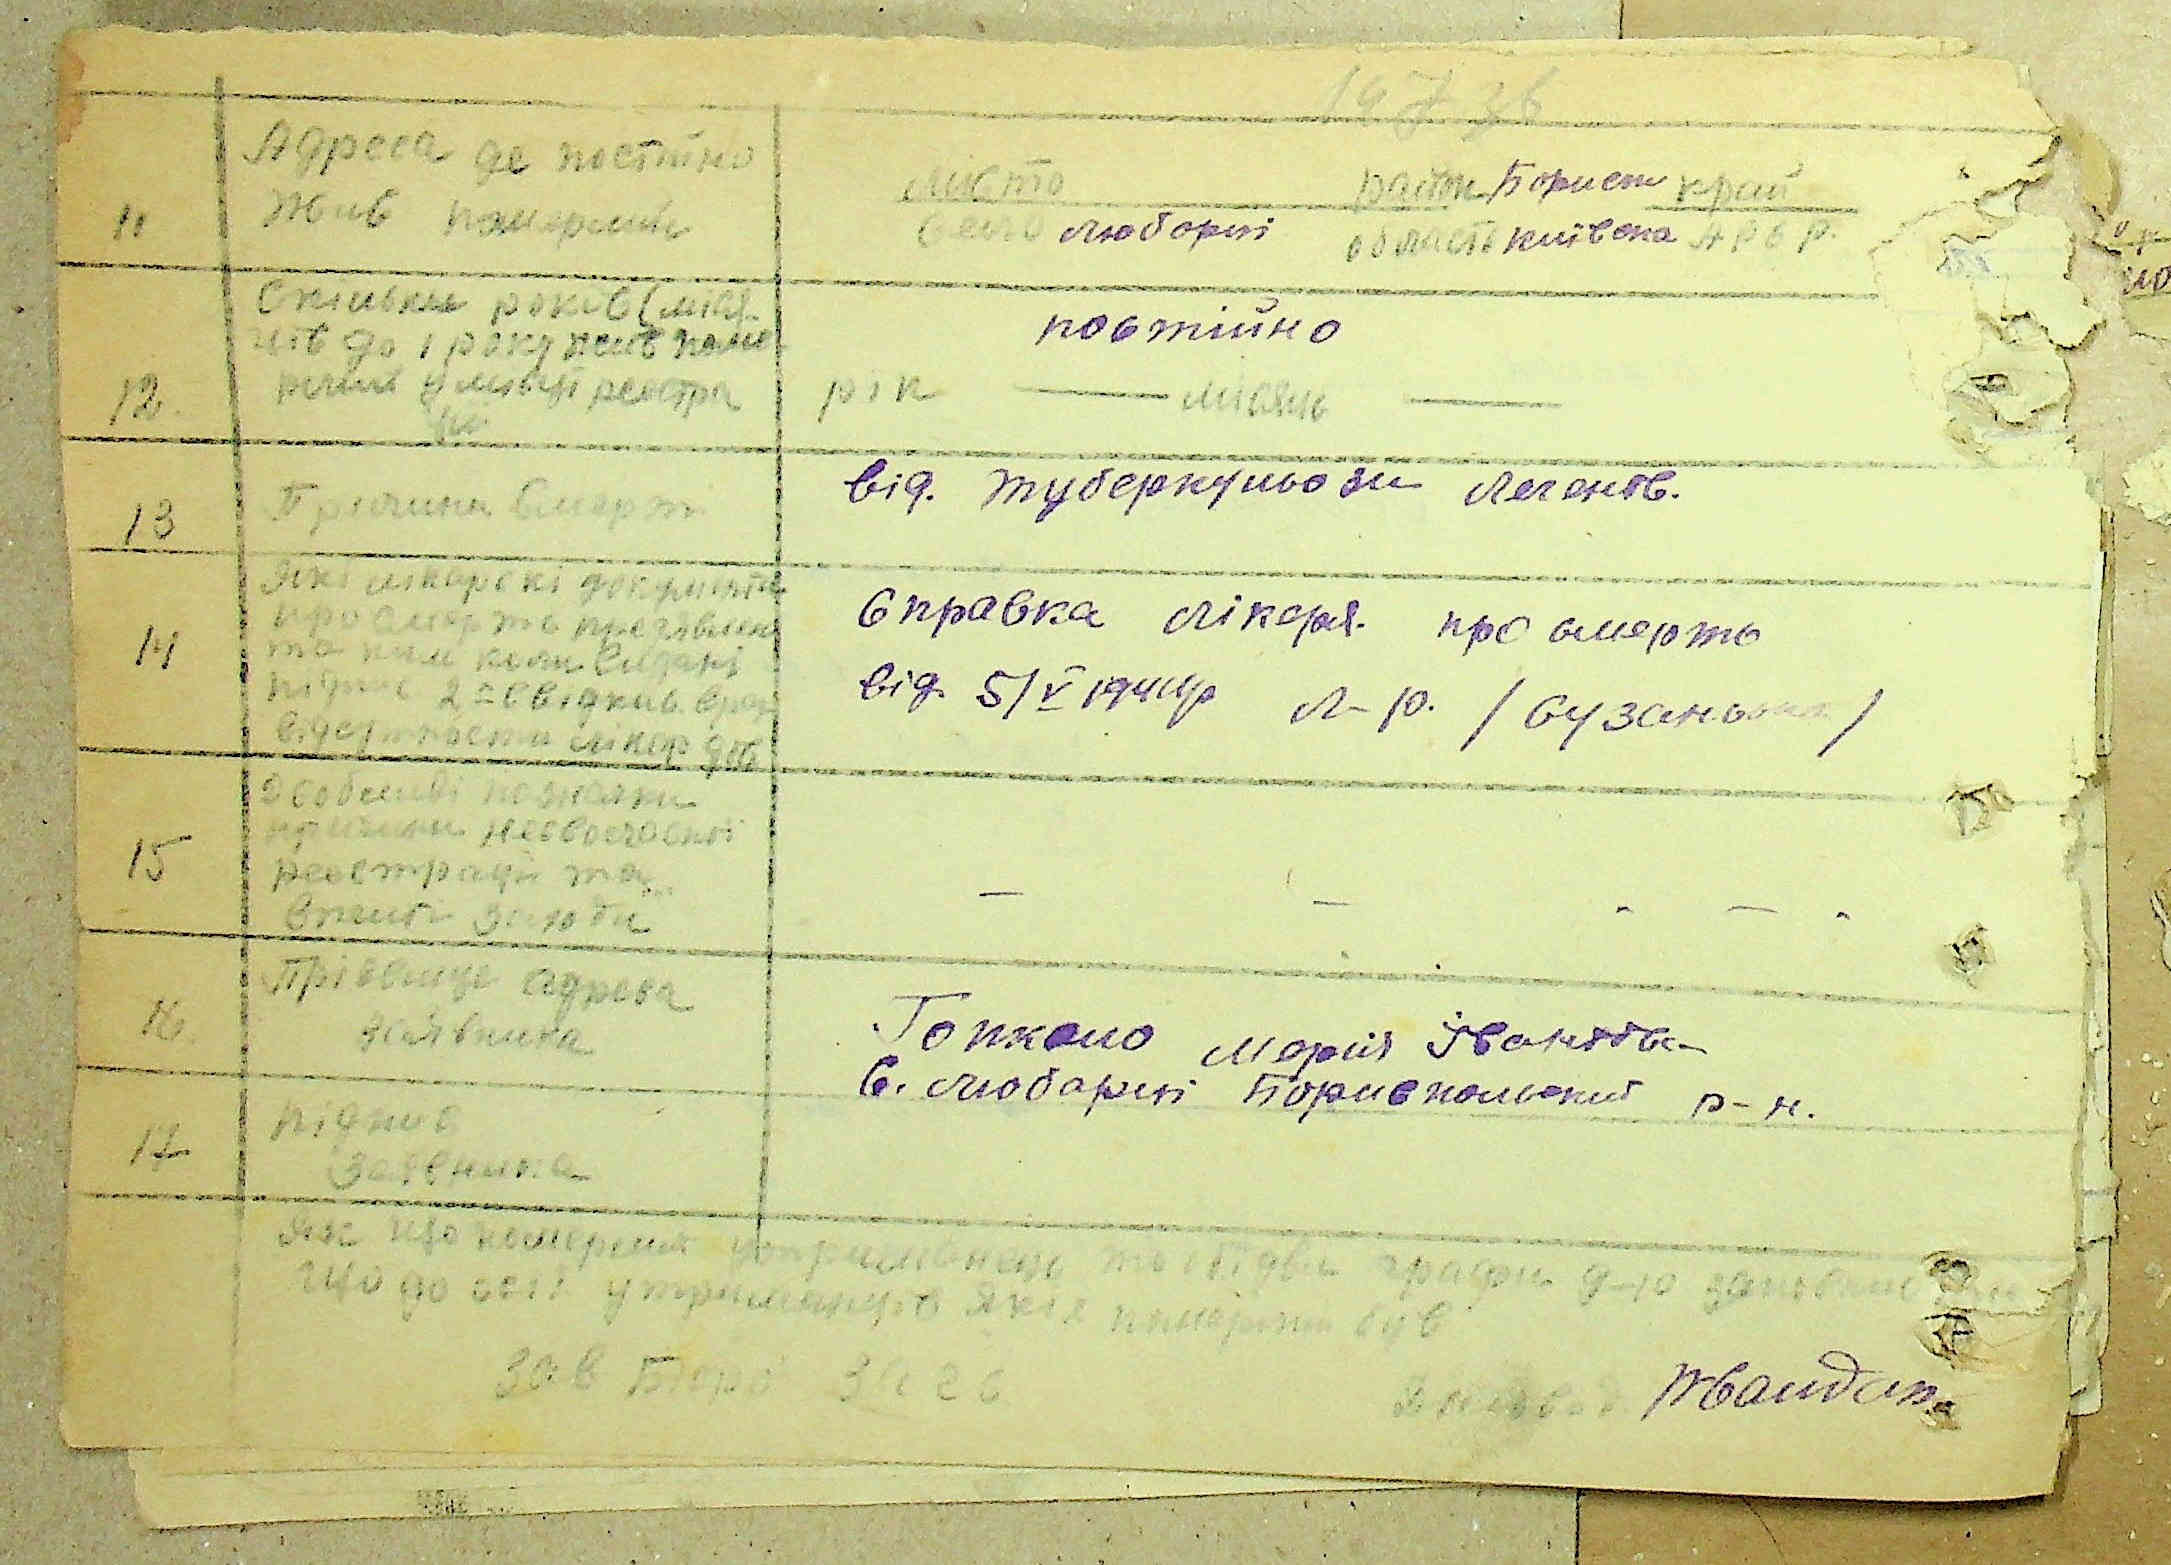 11 Адреса де постійно
жив померший
місто район Борисп край
село Любарці область Київська АРСР.
12. Скільки років (міся-
ців до 1 року жив поме-
рший у місці реєстра
ції
постійно
рік — місяць —
13 Причина смерти
від. туберкульози легенів.
14 Які лікарські документи
про смерть предявлено
та ким коли видані
підпис 2-х свідків. в раз
відсутности лікар док
Справка лікаря. про смерть
від. 5/V 1941р Л-р. /
15 Особливі познаки
причини несвоєчасної
реєстрації та
вжиті заходи
— — - — -
16. Прізвище адреса
заявника
Гопкало Марія Іванівна
с. Любарці Бориспольский р-н.
17 Підпис
заявника
Як що померший утриманець то обідви графи 9-10 заповнює
що до осіб утриманців яких померший був
Зав Бюро ЗАГС